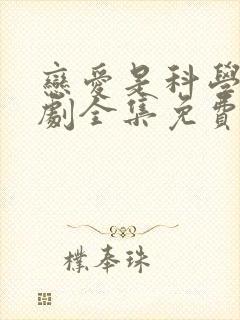 戀愛是科學
劇全集免費
樸奉珠